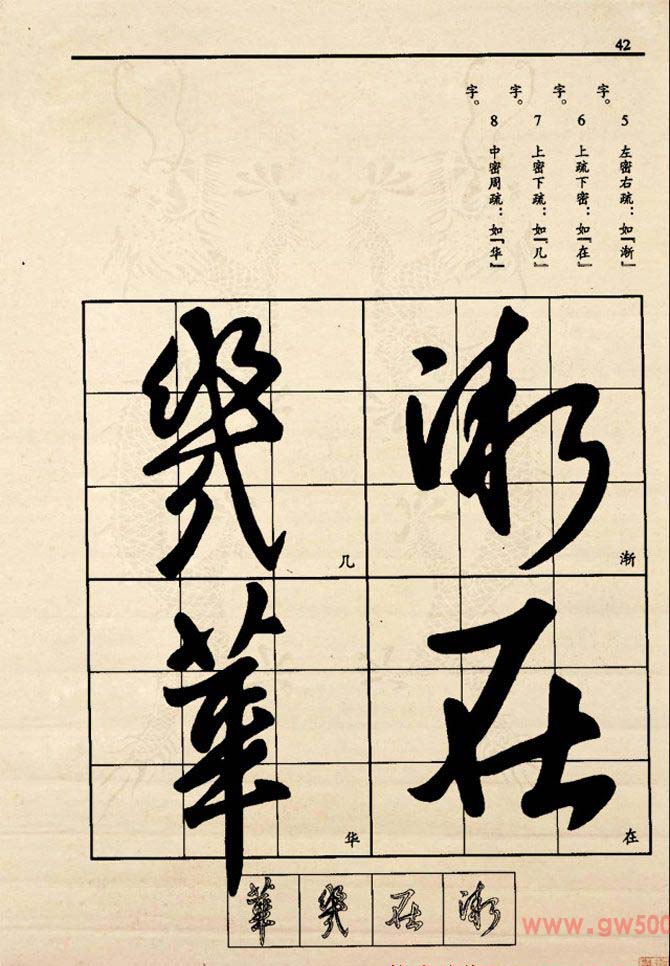 42
5 左密右疏：如『渐』
字。
6 上疏下密：如『在』
字。
7 上密下疏：如『几』
字。
8 中密周疏：如『华』
字。
漸
渐
在
在
幾
几
華
华
漸
在
幾
華
www.gw500